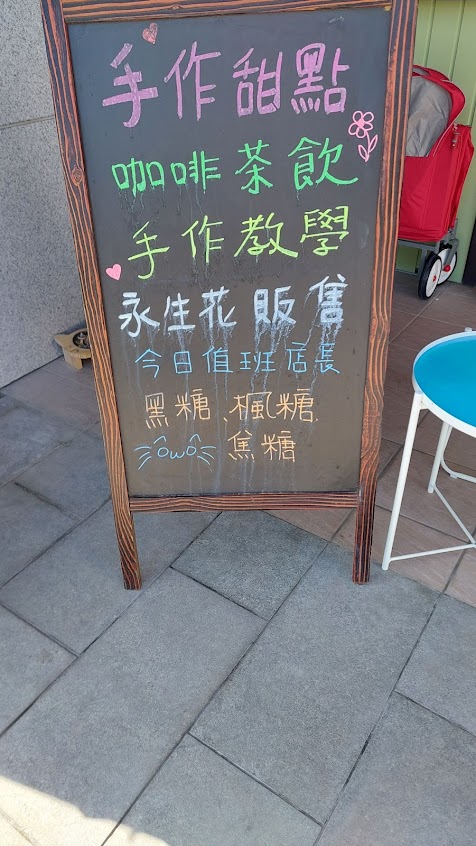 手作甜點
咖啡茶飲
手作教學
永生花販售
今日值班店長
黑糖、楓糖、
ÒwÓ 焦糖